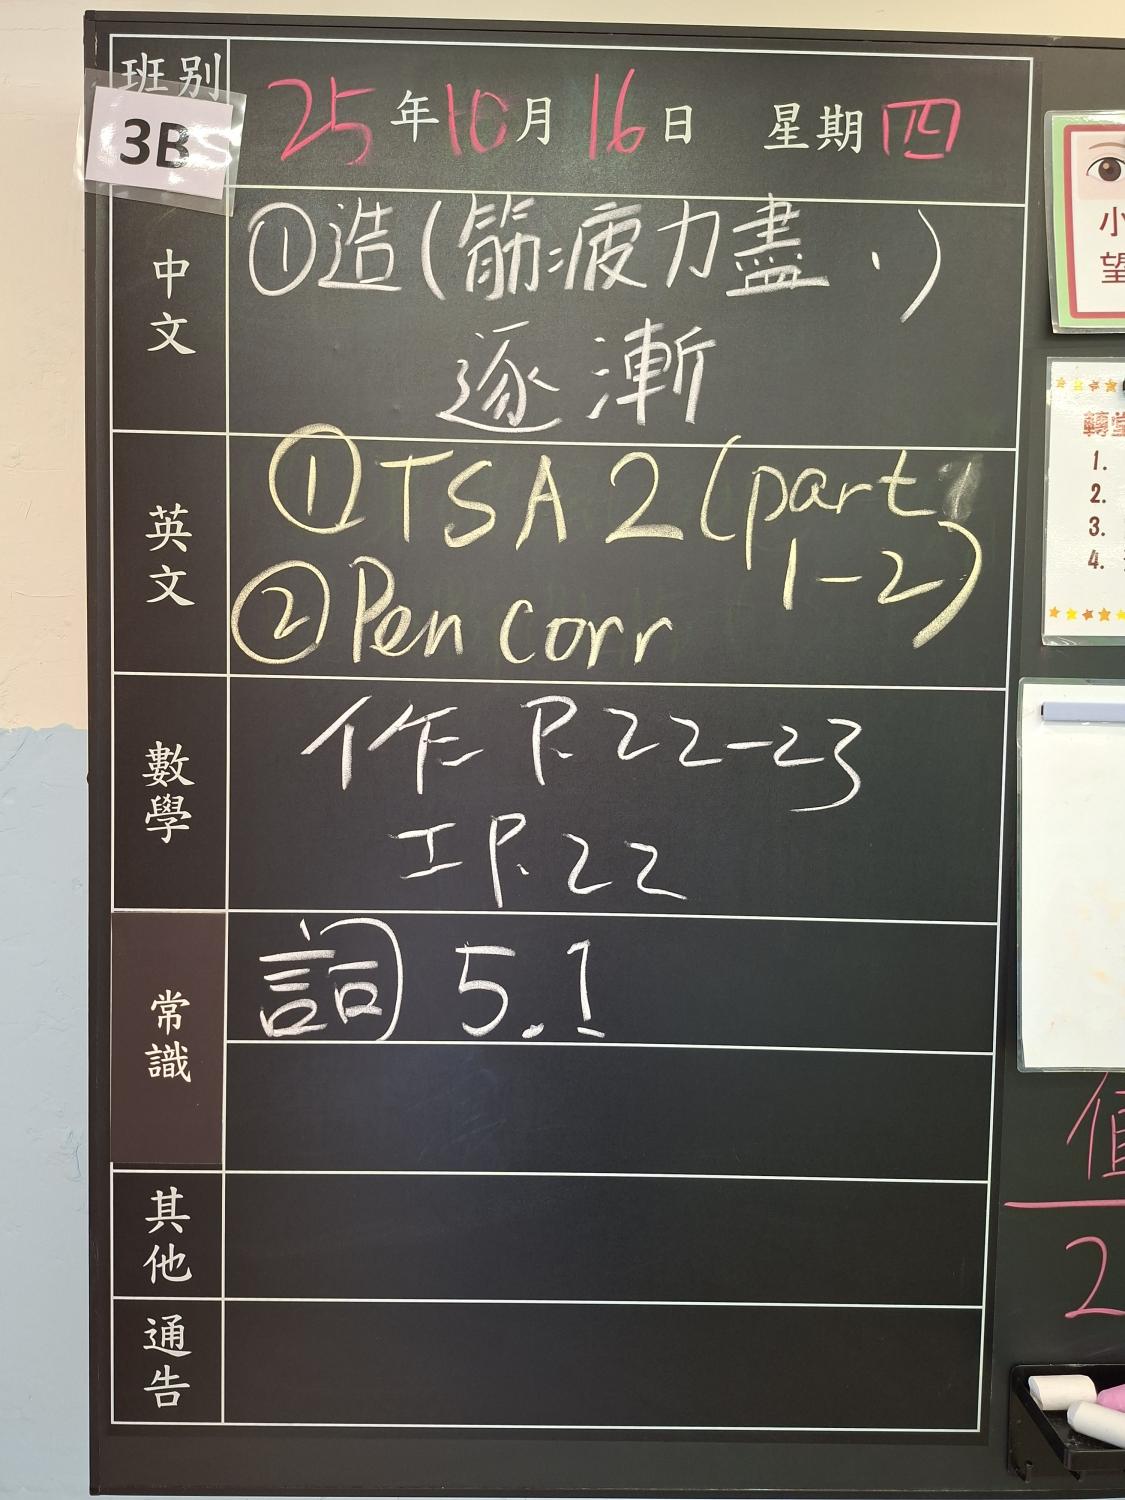 班別
3B
25年10月16日 星期四
中文
①造(筋疲力盡、)
逐漸
英文
①TSA 2 (part
1-2)
②Pen corr
數學
作 P.22-23
工P.22
常識
詞 5.1
其他
通告
小
望
轉堂
1.
2.
3.
4.
值
2